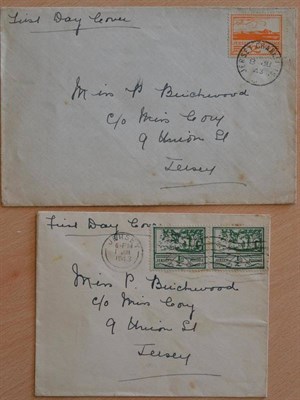 First Day Cover
JERSEY CHANNEL
Miss P Buichwood
c/o Miss Cory
9 Union St
Jersey
First Day Cover
JERSEY
1 JUN
1943
Miss P. Buichwood
c/o Miss Cory
9 Union St
Jersey